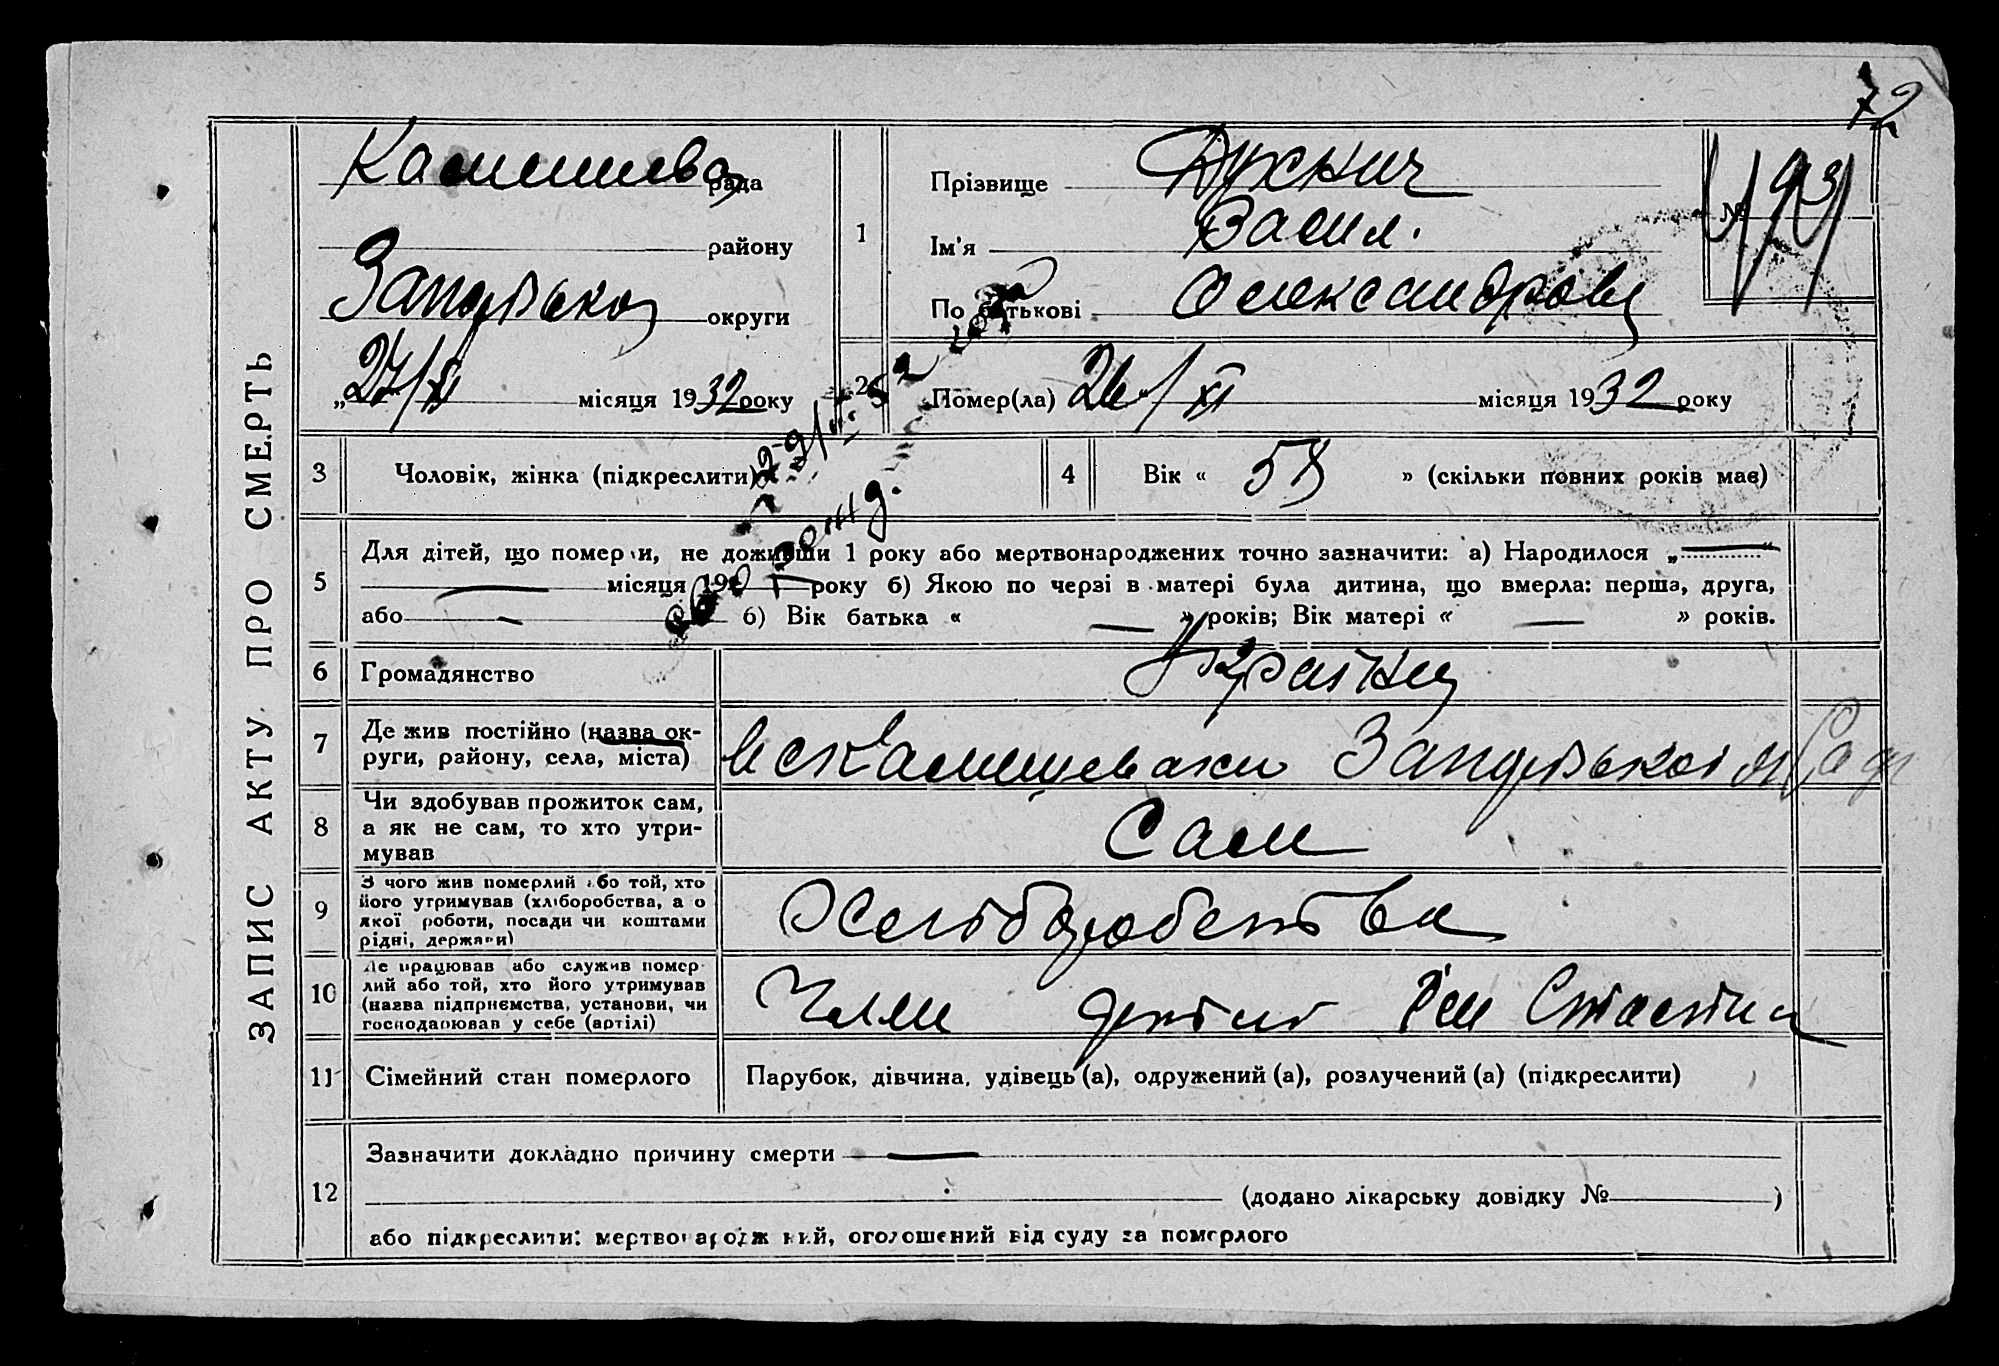 72
ЗАПИС АКТУ ПРО СМЕРТЬ
рада
району
округи
„27/XI місяця 1932 року
1
Прізвище
Ім'я Васил.
По батькові Олександров
№ 193
2 Помер(ла) 26/XI місяця 1932 року
3 Чоловік, жінка (підкреслити)
4 Вік « 58 » (скільки повних років має)
5 Для дітей, що померли, не доживши 1 року або мертвонароджених точно зазначити: а) Народилося „ — “
— місяця 19 — року б) Якою по черзі в матері була дитина, що вмерла: перша, друга,
або — б) Вік батька « — » років; Вік матері « — » років.
6 Громадянство
7 Де жив постійно (назва ок-
руги, району, села, міста)
8 Чи здобував прожиток сам,
а як не сам, то хто утри-
мував
Сам
9 З чого жив померлий або той, хто
його утримував (хліборобства, а о
якої роботи, посади чи коштами
рідні, держави)
Хліборобства
10 Де працював або служив помер-
лий або той, хто його утримував
(назва підприємства, установи, чи
господарював у себе (артілі)
Член артілі Ім Сталіна
11 Сімейний стан померлого Парубок, дівчина, удівець (а), одружений (а), розлучений (а) (підкреслити)
12 Зазначити докладно причину смерти —
(додано лікарську довідку № )
або підкреслити: мертвонароджений, оголошений від суду за померлого